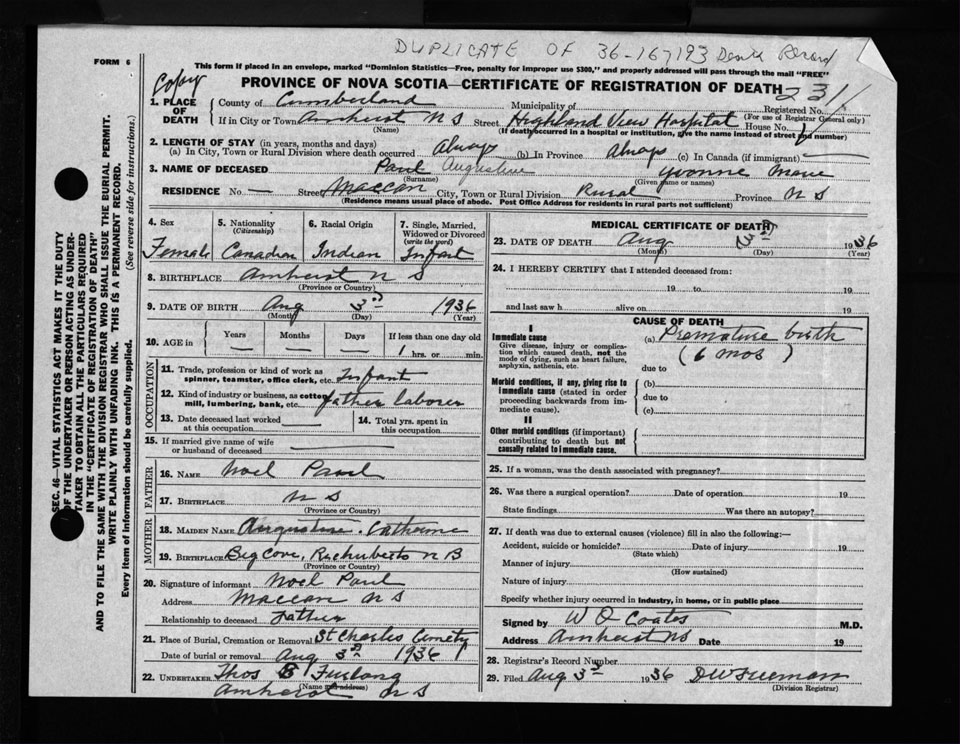 DUPLICATE OF 36-167193 Death Record
FORM 6
This form if placed in an envelope, marked "Dominion Statistics—Free, penalty for improper use $300," and properly addressed will pass through the mail "FREE"
Copy
PROVINCE OF NOVA SCOTIA—CERTIFICATE OF REGISTRATION OF DEATH
231
1. PLACE OF DEATH
County of Cumberland Municipality of Registered No.
(For use of Registrar General only)
If in City or Town Amherst N S Street Highland View Hospital House No.
(Name) (If death occurred in a hospital or institution, give the name instead of street and number)
2. LENGTH OF STAY (in years, months and days)
(a) In City, Town or Rural Division where death occurred always (b) In Province always (c) In Canada (if immigrant)
3. NAME OF DECEASED Paul Augustine Yvonne Marie
(Surname) (Given name or names)
RESIDENCE No. — Street Maccan City, Town or Rural Division Rural Province N S
(Residence means usual place of abode. Post Office Address for residents in rural parts not sufficient)
4. Sex 5. Nationality (Citizenship) 6. Racial Origin 7. Single, Married, Widowed or Divorced (write the word)
Female Canadian Indian Infant
8. BIRTHPLACE Amherst N S
(Province or Country)
9. DATE OF BIRTH Aug 3rd 1936
(Month) (Day) (Year)
10. AGE in Years Months Days If less than one day old
— — — 1 hrs. or min.
OCCUPATION
11. Trade, profession or kind of work as spinner, teamster, office clerk, etc. Infant
12. Kind of industry or business, as cotton mill, lumbering, bank, etc. father laborer
13. Date deceased last worked at this occupation
14. Total yrs. spent in this occupation
15. If married give name of wife or husband of deceased
FATHER
16. NAME Noel Paul
17. BIRTHPLACE N S
(Province or Country)
MOTHER
18. MAIDEN NAME Augustine. Catherine
19. BIRTHPLACE Big Cove, Richubecto N B
(Province or Country)
20. Signature of informant Noel Paul
Address Maccan N S
Relationship to deceased Father
21. Place of Burial, Cremation or Removal St Charles Cemetry
Date of burial or removal Aug 3rd 1936
22. UNDERTAKER Thos B Furlong
(Name and address)
Amherst N S
MEDICAL CERTIFICATE OF DEATH
23. DATE OF DEATH Aug 3rd 1936
(Month) (Day) (Year)
24. I HEREBY CERTIFY that I attended deceased from:
19 to 19
and last saw h alive on 19
CAUSE OF DEATH
I
Immediate cause
Give disease, injury or complication which caused death, not the mode of dying, such as heart failure, asphyxia, asthenia, etc.
(a) Premature birth
(6 mos)
due to
Morbid conditions, if any, giving rise to immediate cause (stated in order proceeding backwards from immediate cause).
(b)
due to
(c)
II
Other morbid conditions (if important) contributing to death but not causally related to immediate cause.
25. If a woman, was the death associated with pregnancy?
26. Was there a surgical operation? Date of operation 19
State findings Was there an autopsy?
27. If death was due to external causes (violence) fill in also the following:—
Accident, suicide or homicide? Date of injury 19
(State which)
Manner of injury
(How sustained)
Nature of injury
Specify whether injury occurred in industry, in home, or in public place
Signed by W O Coates M.D.
Address Amherst NS Date 19
28. Registrar's Record Number
29. Filed Aug 3rd 1936
(Division Registrar)
SEC. 46—VITAL STATISTICS ACT MAKES IT THE DUTY
OF THE UNDERTAKER OR PERSON ACTING AS UNDER-
TAKER TO OBTAIN ALL THE PARTICULARS REQUIRED
IN THE "CERTIFICATE OF REGISTRATION OF DEATH"
AND TO FILE THE SAME WITH THE DIVISION REGISTRAR WHO SHALL ISSUE THE BURIAL PERMIT.
WRITE PLAINLY WITH UNFADING INK. THIS IS A PERMANENT RECORD.
Every item of information should be carefully supplied. (See reverse side for instructions.)